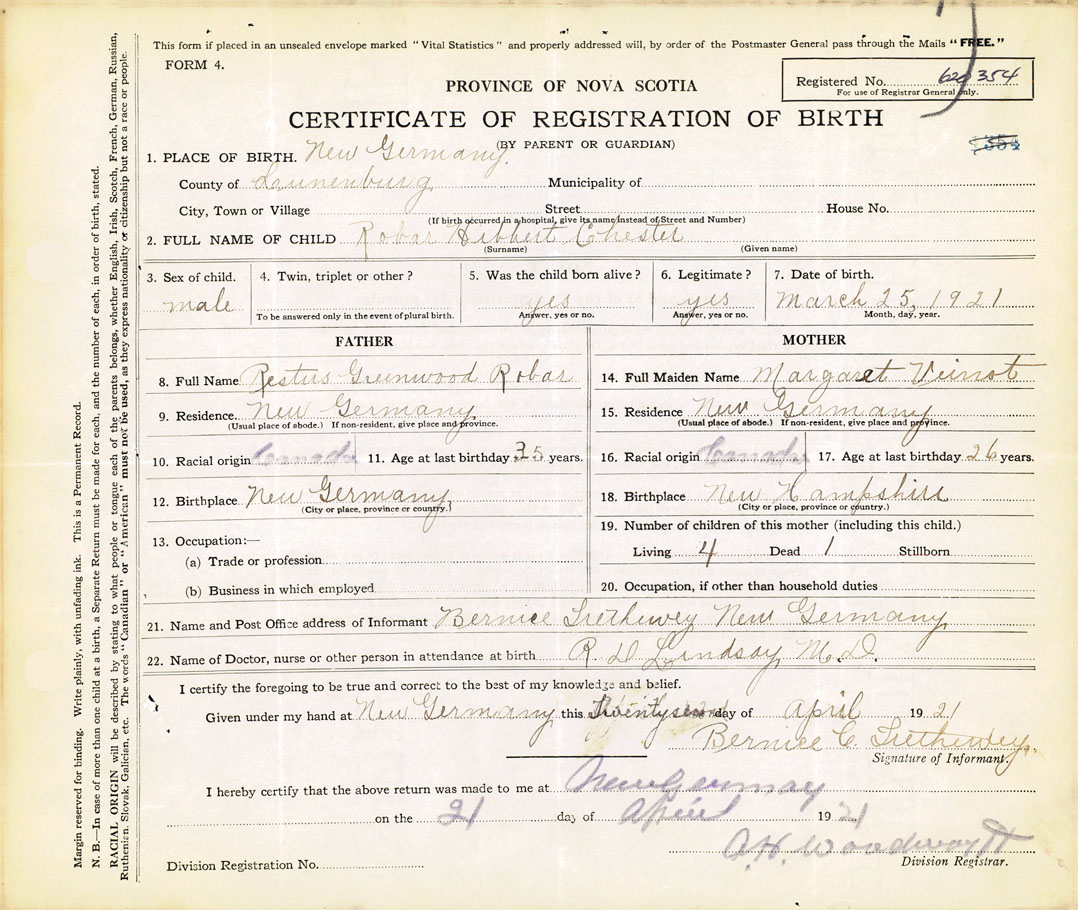 This form if placed in an unsealed envelope marked "Vital Statistics" and properly addressed will, by order of the Postmaster General pass through the Mails "FREE."
FORM 4.
Registered No. 354
For use of Registrar General only.
PROVINCE OF NOVA SCOTIA
CERTIFICATE OF REGISTRATION OF BIRTH
(BY PARENT OR GUARDIAN)
354
1. PLACE OF BIRTH. New Germany
County of Lunenburg Municipality of
City, Town or Village Street House No.
(If birth occurred in a hospital, give its name instead of Street and Number)
2. FULL NAME OF CHILD Robar Hibbert Chester
(Surname) (Given name)
3. Sex of child. 4. Twin, triplet or other? 5. Was the child born alive? 6. Legitimate? 7. Date of birth.
male yes yes March 25, 1921
To be answered only in the event of plural birth. Answer, yes or no. Answer, yes or no. Month, day, year.
FATHER
8. Full Name Restus Greenwood Robar
9. Residence. New Germany
(Usual place of abode.) If non-resident, give place and province.
10. Racial origin Canada 11. Age at last birthday 35 years.
12. Birthplace New Germany
(City or place, province or country.)
13. Occupation:—
(a) Trade or profession
(b) Business in which employed
MOTHER
14. Full Maiden Name Margaret Veinot
15. Residence New Germany
(Usual place of abode.) If non-resident, give place and province.
16. Racial origin Canada 17. Age at last birthday 26 years.
18. Birthplace New Hampshire
(City or place, province or country.)
19. Number of children of this mother (including this child.)
Living 4 Dead 1 Stillborn
20. Occupation, if other than household duties
21. Name and Post Office address of Informant Bernice Trethewey New Germany
22. Name of Doctor, nurse or other person in attendance at birth R. D. Lindsay M.D.
I certify the foregoing to be true and correct to the best of my knowledge and belief.
Given under my hand at New Germany this day of April 1921
Bernice C. Trethewey
Signature of Informant.
I hereby certify that the above return was made to me at New Germany
on the 21 day of April 1921
A. H. Woodworth
Division Registrar.
Division Registration No.
Margin reserved for binding. Write plainly, with unfading ink. This is a Permanent Record.
N. B.—In case of more than one child at a birth, a Separate Return must be made for each, and the number of each, in order of birth, stated.
RACIAL ORIGIN will be described by stating to what people or tongue each of the parents belongs, whether English, Irish, Scotch, French, German, Russian,
Ruthenian, Slovak, Galician, etc. The words "Canadian" or "American" must not be used, as they express nationality or citizenship but not a race or people.